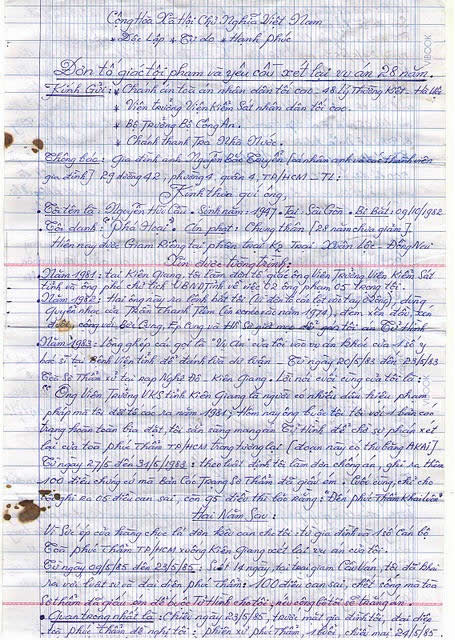 Cộng Hòa Xã Hội Chủ Nghĩa Việt Nam
* Độc Lập * Tự do * Hạnh phúc
Đơn tố giác tội phạm và yêu cầu xét lại vụ án 28 năm.
Kính Gửi: * Chánh án tòa án nhân dân tối cao - 48 Lý Thường Kiệt - Hà Nội
* Viện trưởng Viện Kiểm Sát nhân dân tối cao.
* Bộ Trưởng Bộ Công An.
* Chánh thanh Tra Nhà Nước.
Thông báo: Gia đình anh Nguyễn Bắc Truyển [cá nhân anh và các thành viên
gia đình] 29 đường 42, phường 4, quận 4, TP/HCM - TL:
Kính thưa quí ông.
Tôi tên là: Nguyễn Hữu Cầu. Sinh năm: 1947. Tại: Sài Gòn. Bị Bắt: 09/10/1982
Tội danh: "Phá Hoại". Án phạt: Chung thân [28 năm chưa giảm].
Hiện nay được Giam Riêng tại phân trại K2 Trại Xuân Lộc - Đồng Nai
Xin được trình
Năm 1981: tại Kiên Giang, tôi làm đơn tố giác ông Viện Trưởng Viện Kiểm Sát
tỉnh và ông phó chủ tịch UBND Tỉnh về việc 02 ông phạm 05 trọng tội.
Năm 1982: Hai ông này ra lệnh bắt tôi
Quyển nhạc của Trần Thanh Tùng
cộng với Bức Cung, Ép Cung
Năm 1983: Lồng ghép cái gọi là "Vụ Án" của tôi vào vụ án khác của 1 số y
bác sĩ tại Bệnh viện tỉnh để đánh lừa dư luận - Từ ngày 20/5/83 đến 23/5/83
Tòa Sơ Thẩm xử tại rạp Nghệ Đô - Kiên Giang: Lời nói cuối cùng của tôi là:
"Ông Viện Trưởng VKS tỉnh Kiên Giang là người có nhiều dấu hiệu phạm
pháp mà tôi đã tố cáo ra năm 1981: Hôm nay ông buộc tôi với 1 bản cáo
trạng hoàn toàn lừa dối, tôi cần cái mạng này Tử Hình để chờ sự phán xét
lại của tòa phúc Thẩm TP/HCM trong tương lai [đoạn này có thu băng AKAI]
Từ ngày 27/5 đến 31/5/1983: theo luật định tôi làm đơn chống án, ghi ra thêm
100 điều chứng cứ mà Bản Cáo Trạng Sơ Thẩm đã giấu ém.
ghi ra 05 điều can sai, còn 95 điều thì bảo rằng: "Đến phúc Thẩm Khai luôn"
Hai Năm Sau:
Vì Sức ép của hàng chục lá đơn kêu oan cho tôi: từ gia đình và 1 số Cán bộ
Tòa phúc Thẩm TP/HCM xuống Kiên Giang xét lại vụ án của tôi.
Từ ngày 09/5/85 đến 23/5/85: Suốt 14 ngày, tại trại giam Cầu Ván, tôi đã khai
ra với luật sư và đại diện phúc Thẩm: 100 điều can sai, hết cộng mà tòa
Sơ thẩm đã giấu ém để buộc Tử Hình cho tôi, nếu công bố tôi sẽ thắng án.
Quan trọng nhất là: Chiều ngày 23/5/85, trước mặt gia đình tôi, đại diện
tòa phúc Thẩm đề nghị tôi: phiên xử phúc Thẩm, 1 buổi, sáng mai, 24/5/85.
VBOOK